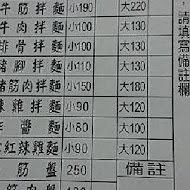 牛筋拌麵 小190 大220
牛肉拌麵 小100 大130
排骨拌麵 小100 大130
豬腳拌麵 小110 大130
牛肉拌麵 小150 大180
辣雞拌麵 小90 大120
炸醬麵 小80 大100
紅辣雞麵 小90 大120
筋盤 250 備註
肉盤
,請填寫備註欄